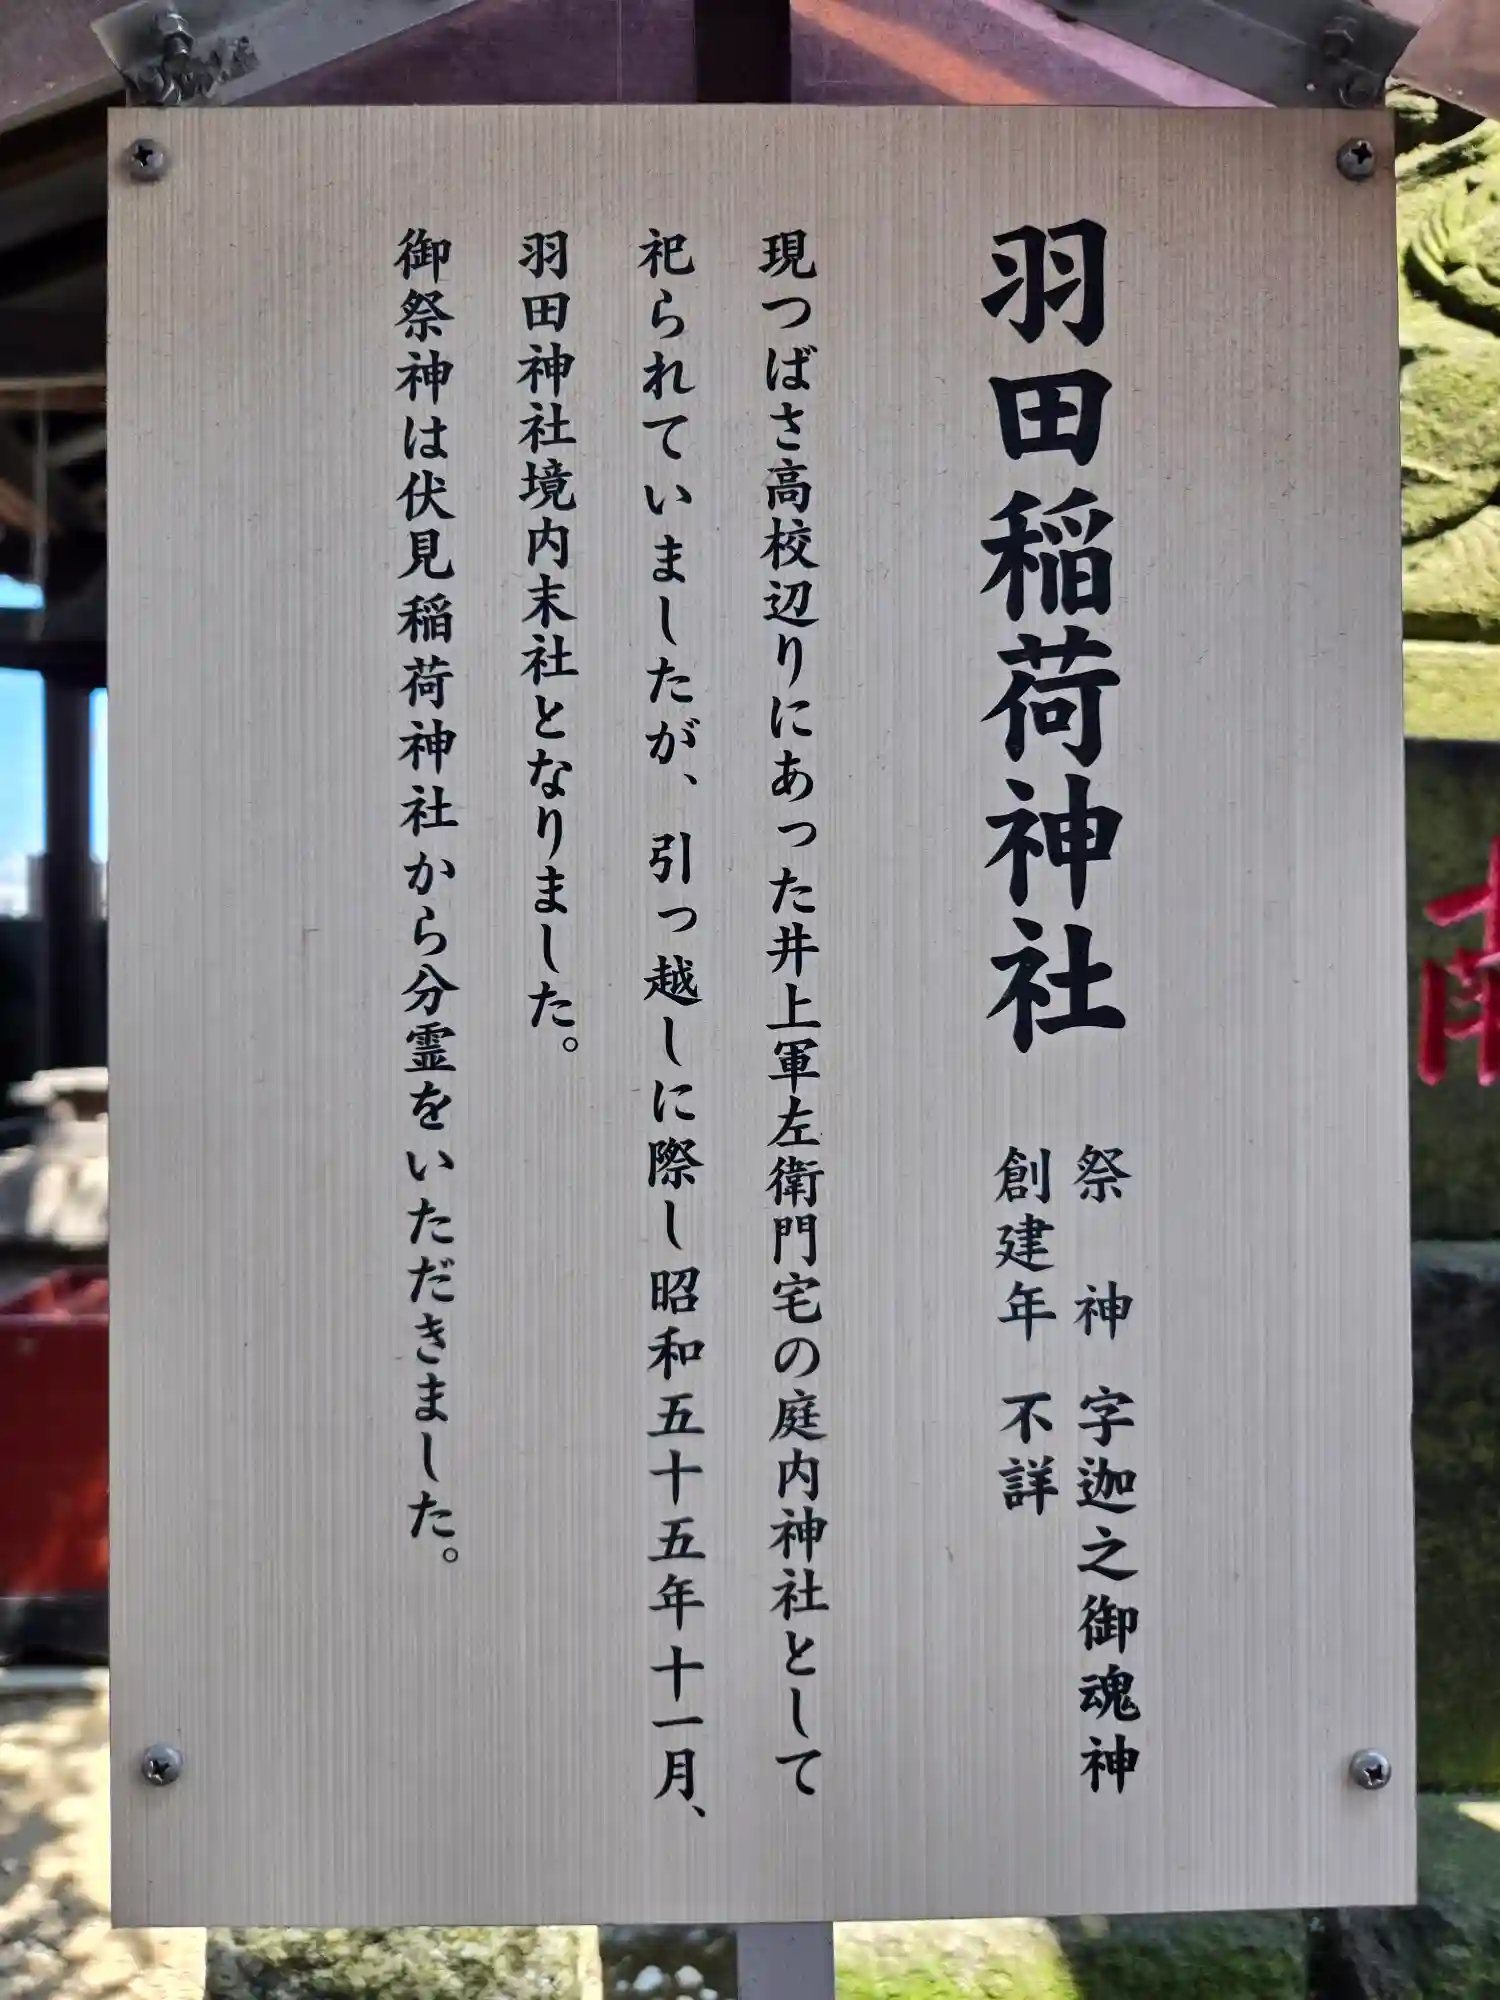 羽田稲荷神社
祭　神　字迦之御魂神
創建年　不詳
現つばさ高校辺りにあった井上軍左衛門宅の庭内神社として
祀られていましたが、引っ越しに際し昭和五十五年十一月、
羽田神社境内末社となりました。
御祭神は伏見稲荷神社から分霊をいただきました。